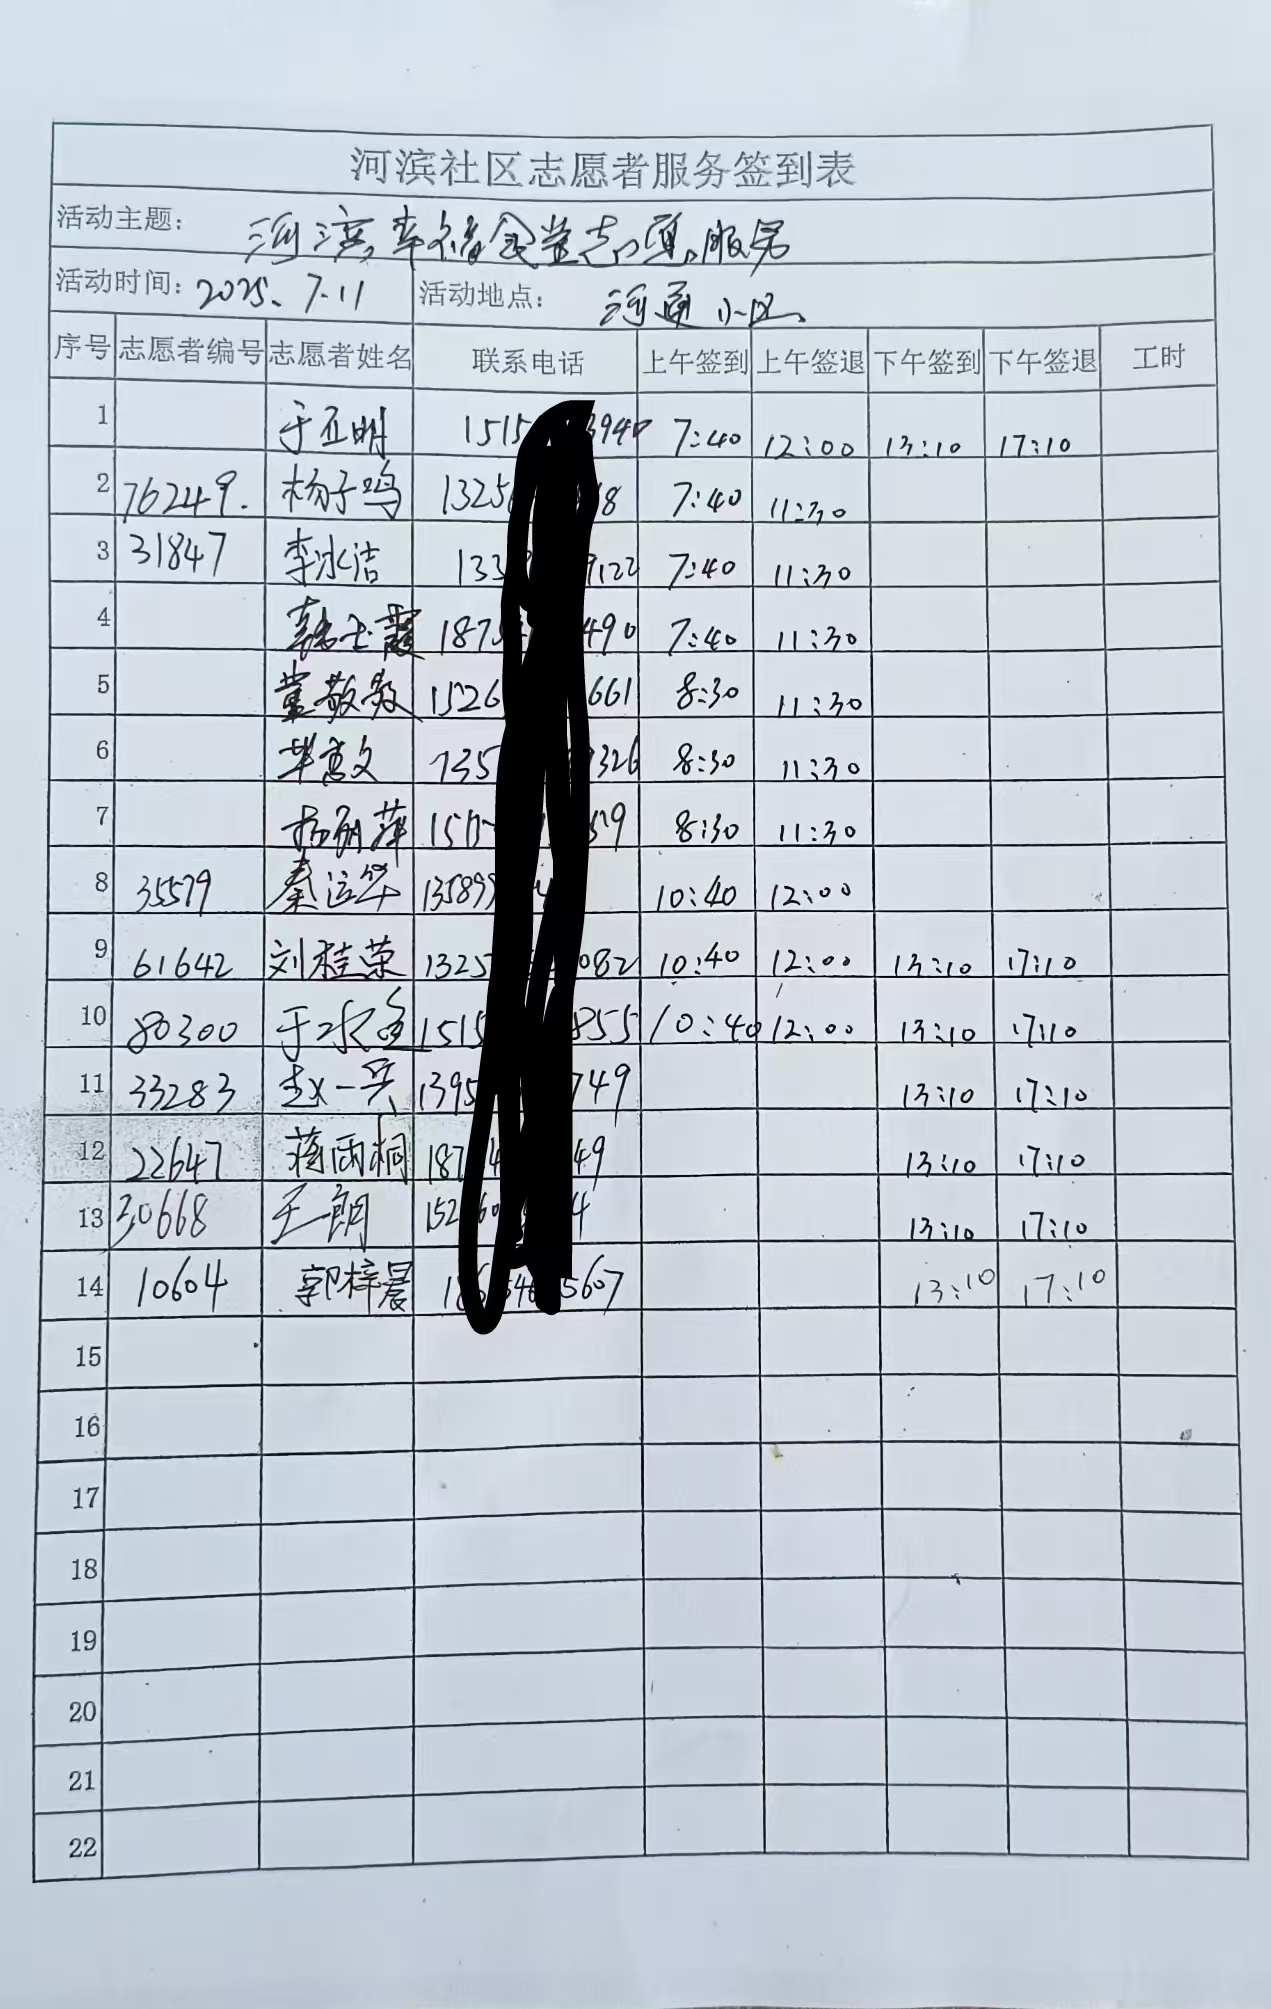 河滨社区志愿者服务签到表
活动主题： 河滨幸福食堂志愿服务
活动时间：2025.7.11 活动地点： 河通小区
序号 志愿者编号 志愿者姓名 联系电话 上午签到 上午签退 下午签到 下午签退 工时
1 于正明 1515 3940 7:40 12:00 13:10 17:10
2 76249. 杨子鸣 1325 8 7:40 11:30
3 31847 李冰洁 133 9122 7:40 11:30
4 霞 187 490 7:40 11:30
5 董敬敏 1526 661 8:30 11:30
6 毕惠文 135 326 8:30 11:30
7 杨丽萍 15 59 8:30 11:30
8 35579 秦运华 135899 10:40 12:00
9 61642 刘桂荣 1325 082 10:40 12:00 13:10 17:10
10 80300 于水 1515 855 10:40 12:00 13:10 17:10
11 33283 赵一 1395 749 13:10 17:10
12 22647 蒋雨桐 187 49 13:10 17:10
13 30668 王朗 152 4 13:10 17:10
14 10604 郭梓晨 18 5607 13:10 17:10
15
16
17
18
19
20
21
22